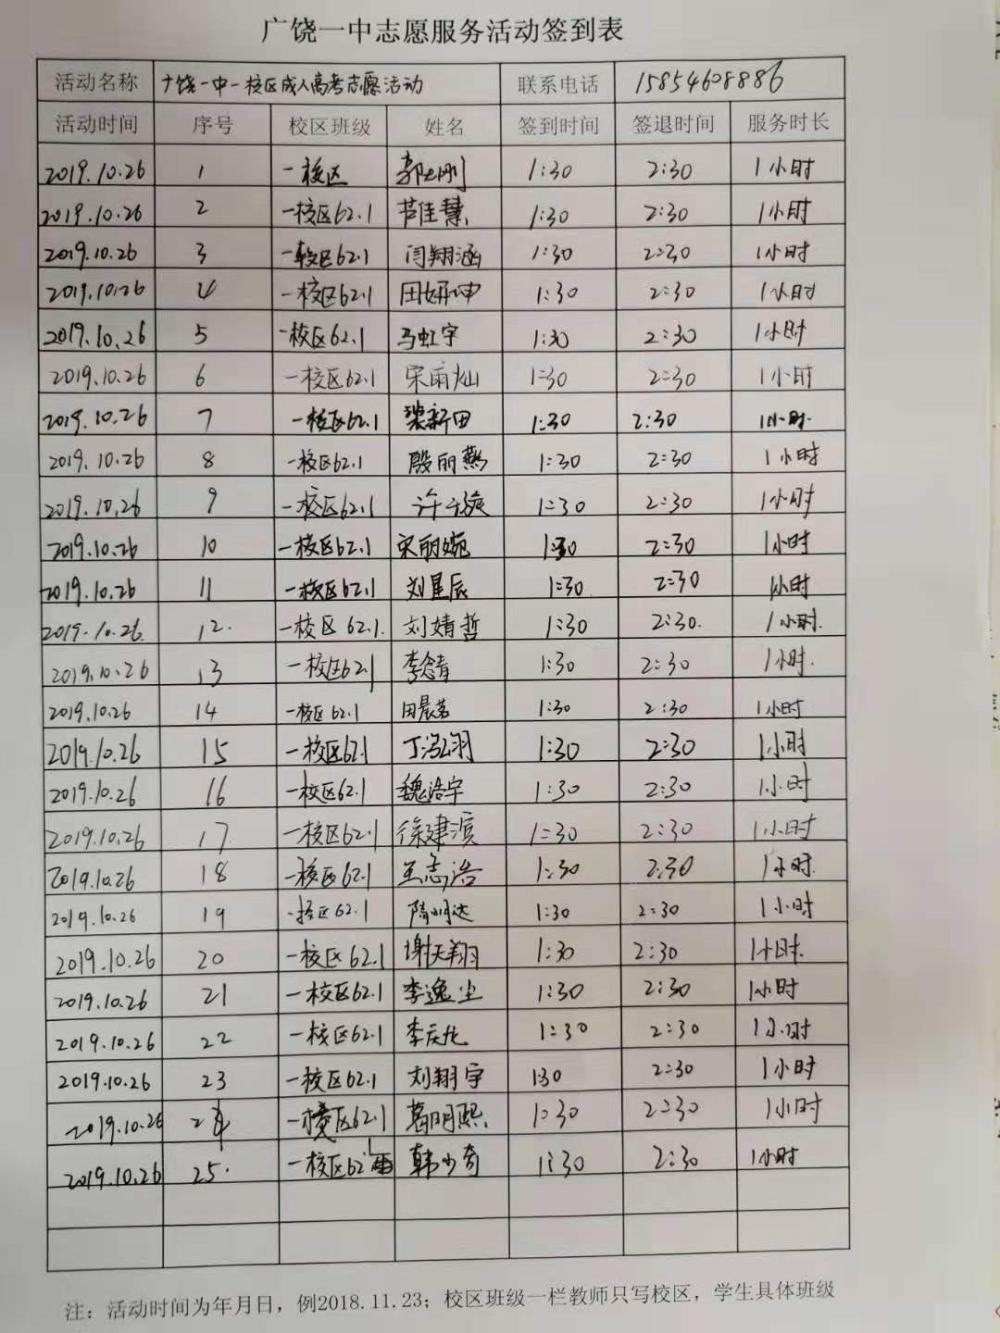 广饶一中志愿服务活动签到表
活动名称 广饶一中一校区成人高考志愿活动 联系电话 15854608886
活动时间 序号 校区班级 姓名 签到时间 签退时间 服务时长
2019.10.26 1 一校区 1:30 2:30 1小时
2019.10.26 2 一校区62.1 芦佳慧 1:30 2:30 1小时
2019.10.26 3 一校区62.1 闫翔涵 1:30 2:30 1小时
2019.10.26 4 一校区62.1 田妍坤 1:30 2:30 1小时
2019.10.26 5 一校区62.1 马虹宇 1:30 2:30 1小时
2019.10.26 6 一校区62.1 宋雨灿 1:30 2:30 1小时
2019.10.26 7 一校区62.1 裴新田 1:30 2:30 1小时.
2019.10.26 8 一校区62.1 殷丽燕 1:30 2:30 1小时
2019.10.26 9 一校区62.1 1:30 2:30 1小时
2019.10.26 10 一校区62.1 宋丽婉 1:30 2:30 1小时
2019.10.26 11 一校区62.1 刘星辰 1:30 2:30 1小时
2019.10.26. 12. 一校区62.1. 刘婧哲 1:30 2:30. 1小时.
2019.10.26 13 一校区62.1 李念青 1:30 2:30 1小时.
2019.10.26 14 一校区62.1 田晨茗 1:30 2:30 1小时
2019.10.26 15 一校区62.1 丁泓羽 1:30 2:30 1小时
2019.10.26 16 一校区62.1 魏浩宇 1:30 2:30 1小时
2019.10.26 17 一校区62.1 徐建滨 1:30 2:30 1小时
2019.10.26 18 一校区62.1 王志浩 1:30 2:30 1小时.
2019.10.26 19 一校区62.1 隋明达 1:30 2:30 1小时
2019.10.26 20 一校区62.1 谢天翔 1:30 2:30 1小时.
2019.10.26 21 一校区62.1 李逸尘 1:30 2:30 1小时
2019.10.26 22 一校区62.1 李庆龙 1:30 2:30 1小时
2019.10.26 23 一校区62.1 刘翔宇 1:30 2:30 1小时
2019.10.26 24 一校区62.1 葛明熙 1:30 2:30 1小时
2019.10.26 25. 一校区62.1 韩少奇 1:30 2:30 1小时
注：活动时间为年月日，例2018.11.23；校区班级一栏教师只写校区，学生具体班级